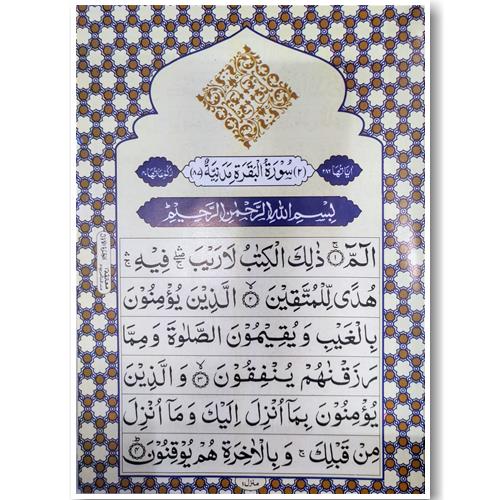 اٰیَاتُهَا ٢٨٦ (٢) سُوْرَةُ الْبَقَرَةِ مَدَنِیَّةٌ (٨٧) رُكُوْعَاتُهَا ٤٠
بِسْمِ اللّٰهِ الرَّحْمٰنِ الرَّحِیْمِ
الٓمّٓ ۚ ١ ذٰلِكَ الْكِتٰبُ لَا رَیْبَ ۛ فِیْهِ ۛ
هُدًی لِّلْمُتَّقِیْنَ ۙ ٢ الَّذِیْنَ یُؤْمِنُوْنَ
بِالْغَیْبِ وَ یُقِیْمُوْنَ الصَّلٰوةَ وَ مِمَّا
رَزَقْنٰهُمْ یُنْفِقُوْنَ ۙ ٣ وَ الَّذِیْنَ
یُؤْمِنُوْنَ بِمَاۤ اُنْزِلَ اِلَیْكَ وَ مَاۤ اُنْزِلَ
مِنْ قَبْلِكَ ۚ وَ بِالْاٰخِرَةِ هُمْ یُوْقِنُوْنَ ؕ ٤
منزل ١